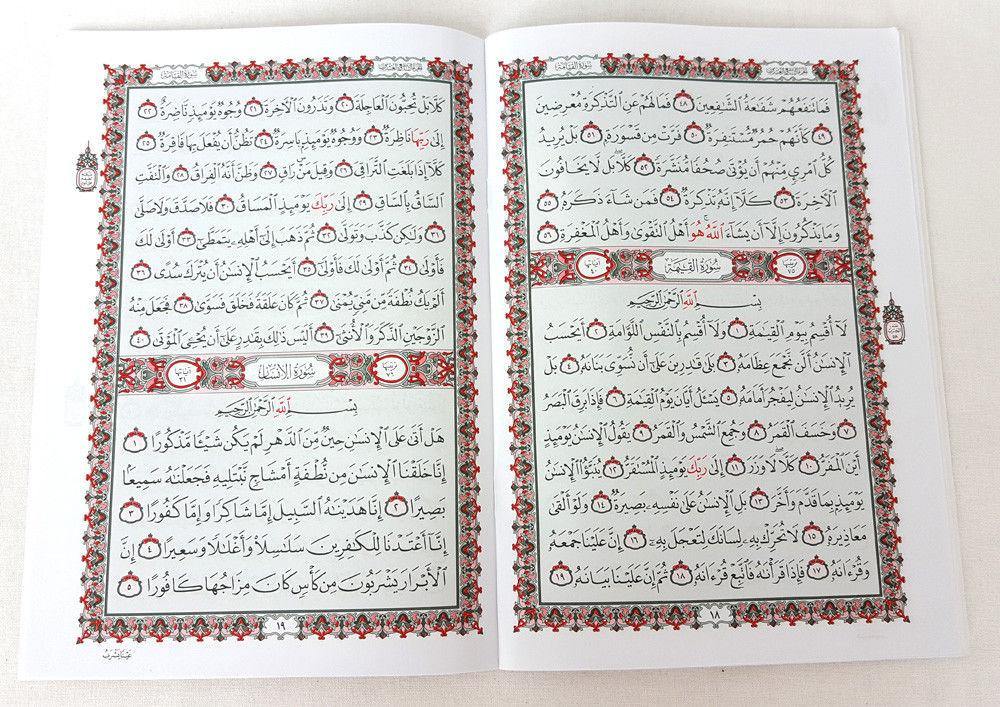 سورة القيامة
فَمَا تَنفَعُهُمْ شَفَاعَةُ الشَّافِعِينَ ٤٨ فَمَا لَهُمْ عَنِ التَّذْكِرَةِ مُعْرِضِينَ
٤٩ كَأَنَّهُمْ حُمُرٌ مُّسْتَنفِرَةٌ ٥٠ فَرَّتْ مِن قَسْوَرَةٍ ٥١ بَلْ يُرِيدُ
كُلُّ امْرِئٍ مِّنْهُمْ أَن يُؤْتَىٰ صُحُفًا مُّنَشَّرَةً ٥٢ كَلَّا بَل لَّا يَخَافُونَ
الْآخِرَةَ ٥٣ كَلَّا إِنَّهُ تَذْكِرَةٌ ٥٤ فَمَن شَاءَ ذَكَرَهُ ٥٥
وَمَا يَذْكُرُونَ إِلَّا أَن يَشَاءَ اللَّهُ هُوَ أَهْلُ التَّقْوَىٰ وَأَهْلُ الْمَغْفِرَةِ ٥٦
ترتيبها ٧٥ سُورَةُ الْقِيَٰمَةِ آياتها ٤٠
بِسْمِ اللَّهِ الرَّحْمَٰنِ الرَّحِيمِ
لَا أُقْسِمُ بِيَوْمِ الْقِيَٰمَةِ ١ وَلَا أُقْسِمُ بِالنَّفْسِ اللَّوَّامَةِ ٢ أَيَحْسَبُ
الْإِنسَٰنُ أَلَّن نَّجْمَعَ عِظَامَهُ ٣ بَلَىٰ قَٰدِرِينَ عَلَىٰ أَن نُّسَوِّيَ بَنَانَهُ ٤ بَلْ
يُرِيدُ الْإِنسَٰنُ لِيَفْجُرَ أَمَامَهُ ٥ يَسْئَلُ أَيَّانَ يَوْمُ الْقِيَٰمَةِ ٦ فَإِذَا بَرِقَ الْبَصَرُ
٧ وَخَسَفَ الْقَمَرُ ٨ وَجُمِعَ الشَّمْسُ وَالْقَمَرُ ٩ يَقُولُ الْإِنسَٰنُ يَوْمَئِذٍ
أَيْنَ الْمَفَرُّ ١٠ كَلَّا لَا وَزَرَ ١١ إِلَىٰ رَبِّكَ يَوْمَئِذٍ الْمُسْتَقَرُّ ١٢ يُنَبَّؤُا الْإِنسَٰنُ
يَوْمَئِذٍ بِمَا قَدَّمَ وَأَخَّرَ ١٣ بَلِ الْإِنسَٰنُ عَلَىٰ نَفْسِهِ بَصِيرَةٌ ١٤ وَلَوْ أَلْقَىٰ
مَعَاذِيرَهُ ١٥ لَا تُحَرِّكْ بِهِ لِسَانَكَ لِتَعْجَلَ بِهِ ١٦ إِنَّ عَلَيْنَا جَمْعَهُ
وَقُرْءَانَهُ ١٧ فَإِذَا قَرَأْنَٰهُ فَاتَّبِعْ قُرْءَانَهُ ١٨ ثُمَّ إِنَّ عَلَيْنَا بَيَانَهُ ١٩
١٨
سورة القيامة
كَلَّا بَلْ تُحِبُّونَ الْعَاجِلَةَ ٢٠ وَتَذَرُونَ الْآخِرَةَ ٢١ وُجُوهٌ يَوْمَئِذٍ نَّاضِرَةٌ ٢٢
إِلَىٰ رَبِّهَا نَاظِرَةٌ ٢٣ وَوُجُوهٌ يَوْمَئِذٍ بَاسِرَةٌ ٢٤ تَظُنُّ أَن يُفْعَلَ بِهَا فَاقِرَةٌ ٢٥
كَلَّا إِذَا بَلَغَتِ التَّرَاقِيَ ٢٦ وَقِيلَ مَنْ رَاقٍ ٢٧ وَظَنَّ أَنَّهُ الْفِرَاقُ ٢٨ وَالْتَفَّتِ
السَّاقُ بِالسَّاقِ ٢٩ إِلَىٰ رَبِّكَ يَوْمَئِذٍ الْمَسَاقُ ٣٠ فَلَا صَدَّقَ وَلَا صَلَّىٰ
٣١ وَلَٰكِن كَذَّبَ وَتَوَلَّىٰ ٣٢ ثُمَّ ذَهَبَ إِلَىٰ أَهْلِهِ يَتَمَطَّىٰ ٣٣ أَوْلَىٰ لَكَ
فَأَوْلَىٰ ٣٤ ثُمَّ أَوْلَىٰ لَكَ فَأَوْلَىٰ ٣٥ أَيَحْسَبُ الْإِنسَٰنُ أَن يُتْرَكَ سُدًى ٣٦
أَلَمْ يَكُ نُطْفَةً مِّن مَّنِيٍّ يُمْنَىٰ ٣٧ ثُمَّ كَانَ عَلَقَةً فَخَلَقَ فَسَوَّىٰ ٣٨ فَجَعَلَ مِنْهُ
الزَّوْجَيْنِ الذَّكَرَ وَالْأُنثَىٰ ٣٩ أَلَيْسَ ذَٰلِكَ بِقَٰدِرٍ عَلَىٰ أَن يُحْيِيَ الْمَوْتَىٰ ٤٠
ترتيبها ٧٦ سُورَةُ الْإِنسَٰنِ آياتها ٣١
بِسْمِ اللَّهِ الرَّحْمَٰنِ الرَّحِيمِ
هَلْ أَتَىٰ عَلَى الْإِنسَٰنِ حِينٌ مِّنَ الدَّهْرِ لَمْ يَكُن شَيْئًا مَّذْكُورًا ١
إِنَّا خَلَقْنَا الْإِنسَٰنَ مِن نُّطْفَةٍ أَمْشَاجٍ نَّبْتَلِيهِ فَجَعَلْنَٰهُ سَمِيعًا
بَصِيرًا ٢ إِنَّا هَدَيْنَٰهُ السَّبِيلَ إِمَّا شَاكِرًا وَإِمَّا كَفُورًا ٣
إِنَّا أَعْتَدْنَا لِلْكَٰفِرِينَ سَلَٰسِلَا وَأَغْلَٰلًا وَسَعِيرًا ٤ إِنَّ
الْأَبْرَارَ يَشْرَبُونَ مِن كَأْسٍ كَانَ مِزَاجُهَا كَافُورًا ٥
١٩